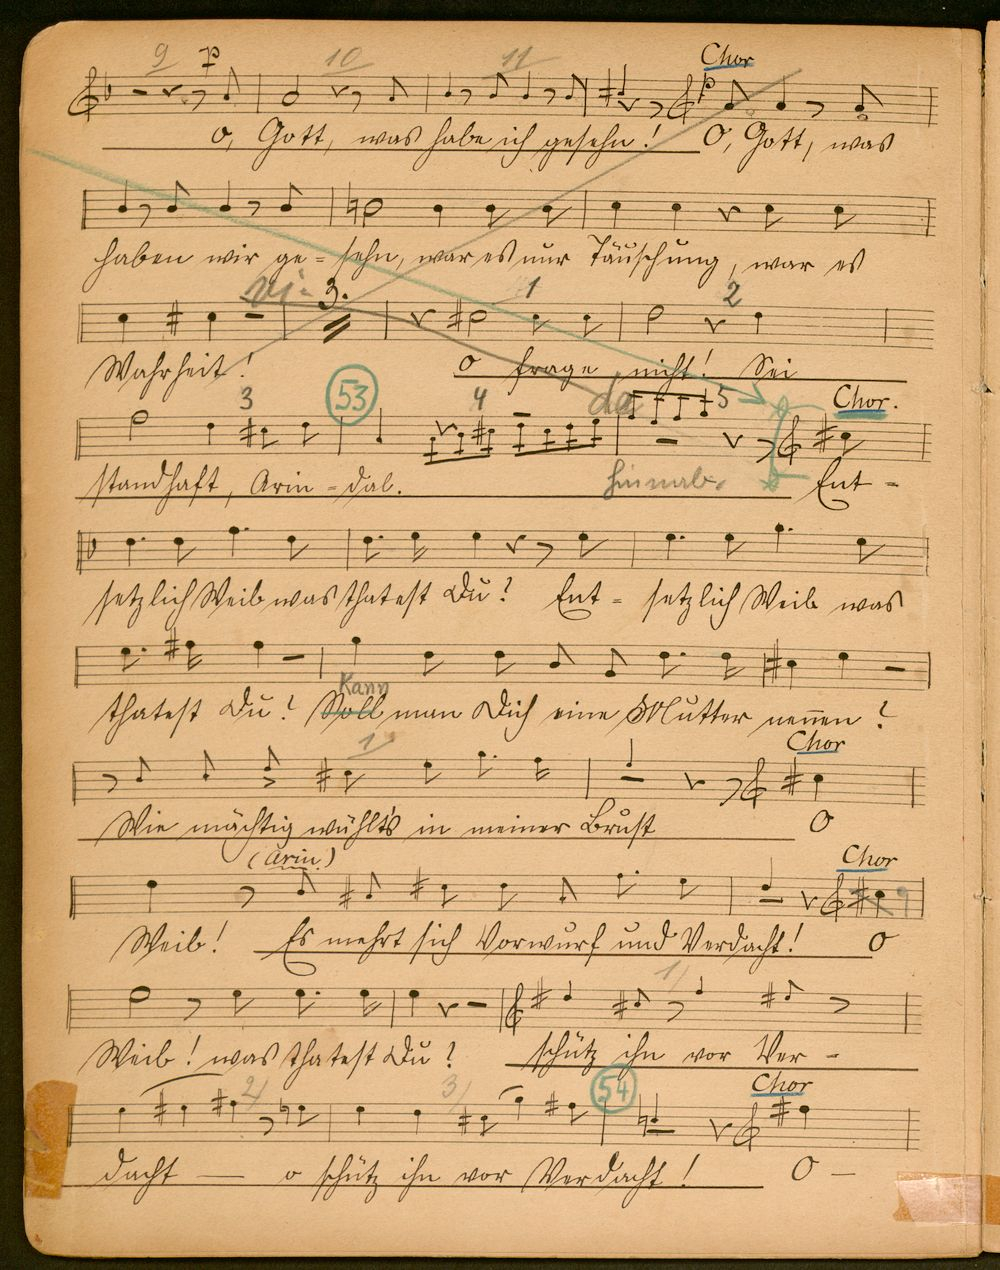 9 p 10 11 Chor p
O, Gott, was habe ich gesehn! O, Gott, was
haben wir ge - sehn, war es nur Täuschung, war es
vi- 3. 1 2
Wahrheit! O frage nicht! Sei
3 53 4 de 5 Chor.
standhaft, Arin - dal. Ent -
setzlich Weib was thatest Du? Ent - setzlich Weib was
Kann
thatest Du? Soll man Dich eine Mutter nennen?
1 Chor
Wie mächtig wühlt's in meiner Brust O
(Arin.) Chor
Weib! Es mehrt sich Vorwurf und Verdacht! O
1
Weib! was thatest Du? schütz ihn vor Ver -
2 3 54 Chor
dacht — o schütz ihn vor Verdacht! O —